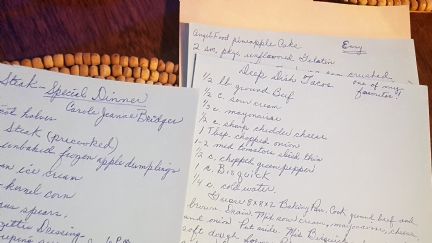 Angel Food pineapple Cake
Easy
2 sm. pkgs. unflavored Gelatin
crushed
Deep Dish Tacos
one of my
favorites!!
1/2 lb ground Beef
1/2 c. sour cream
1/3 c. mayonaise
1/2 c. sharp chedder cheese
1 Tbsp. chopped onion
1-2 med tomatoes sliced thin
1/2 c. chopped green pepper
1 c. Bisquick
1/4 c. cold water.
Grease 8x8x2 Baking Pan. Cook ground beef until
brown. Drain. Mix sour cream, mayonaise, cheese
and onion. Put aside. Mix Bisquick
soft dough
Steak - Special Dinner
Carole Jeanne Bridges
halves
Steak (precooked)
unbaked frozen apple dumplings
ice cream
kernel corn
spears,
Dressing